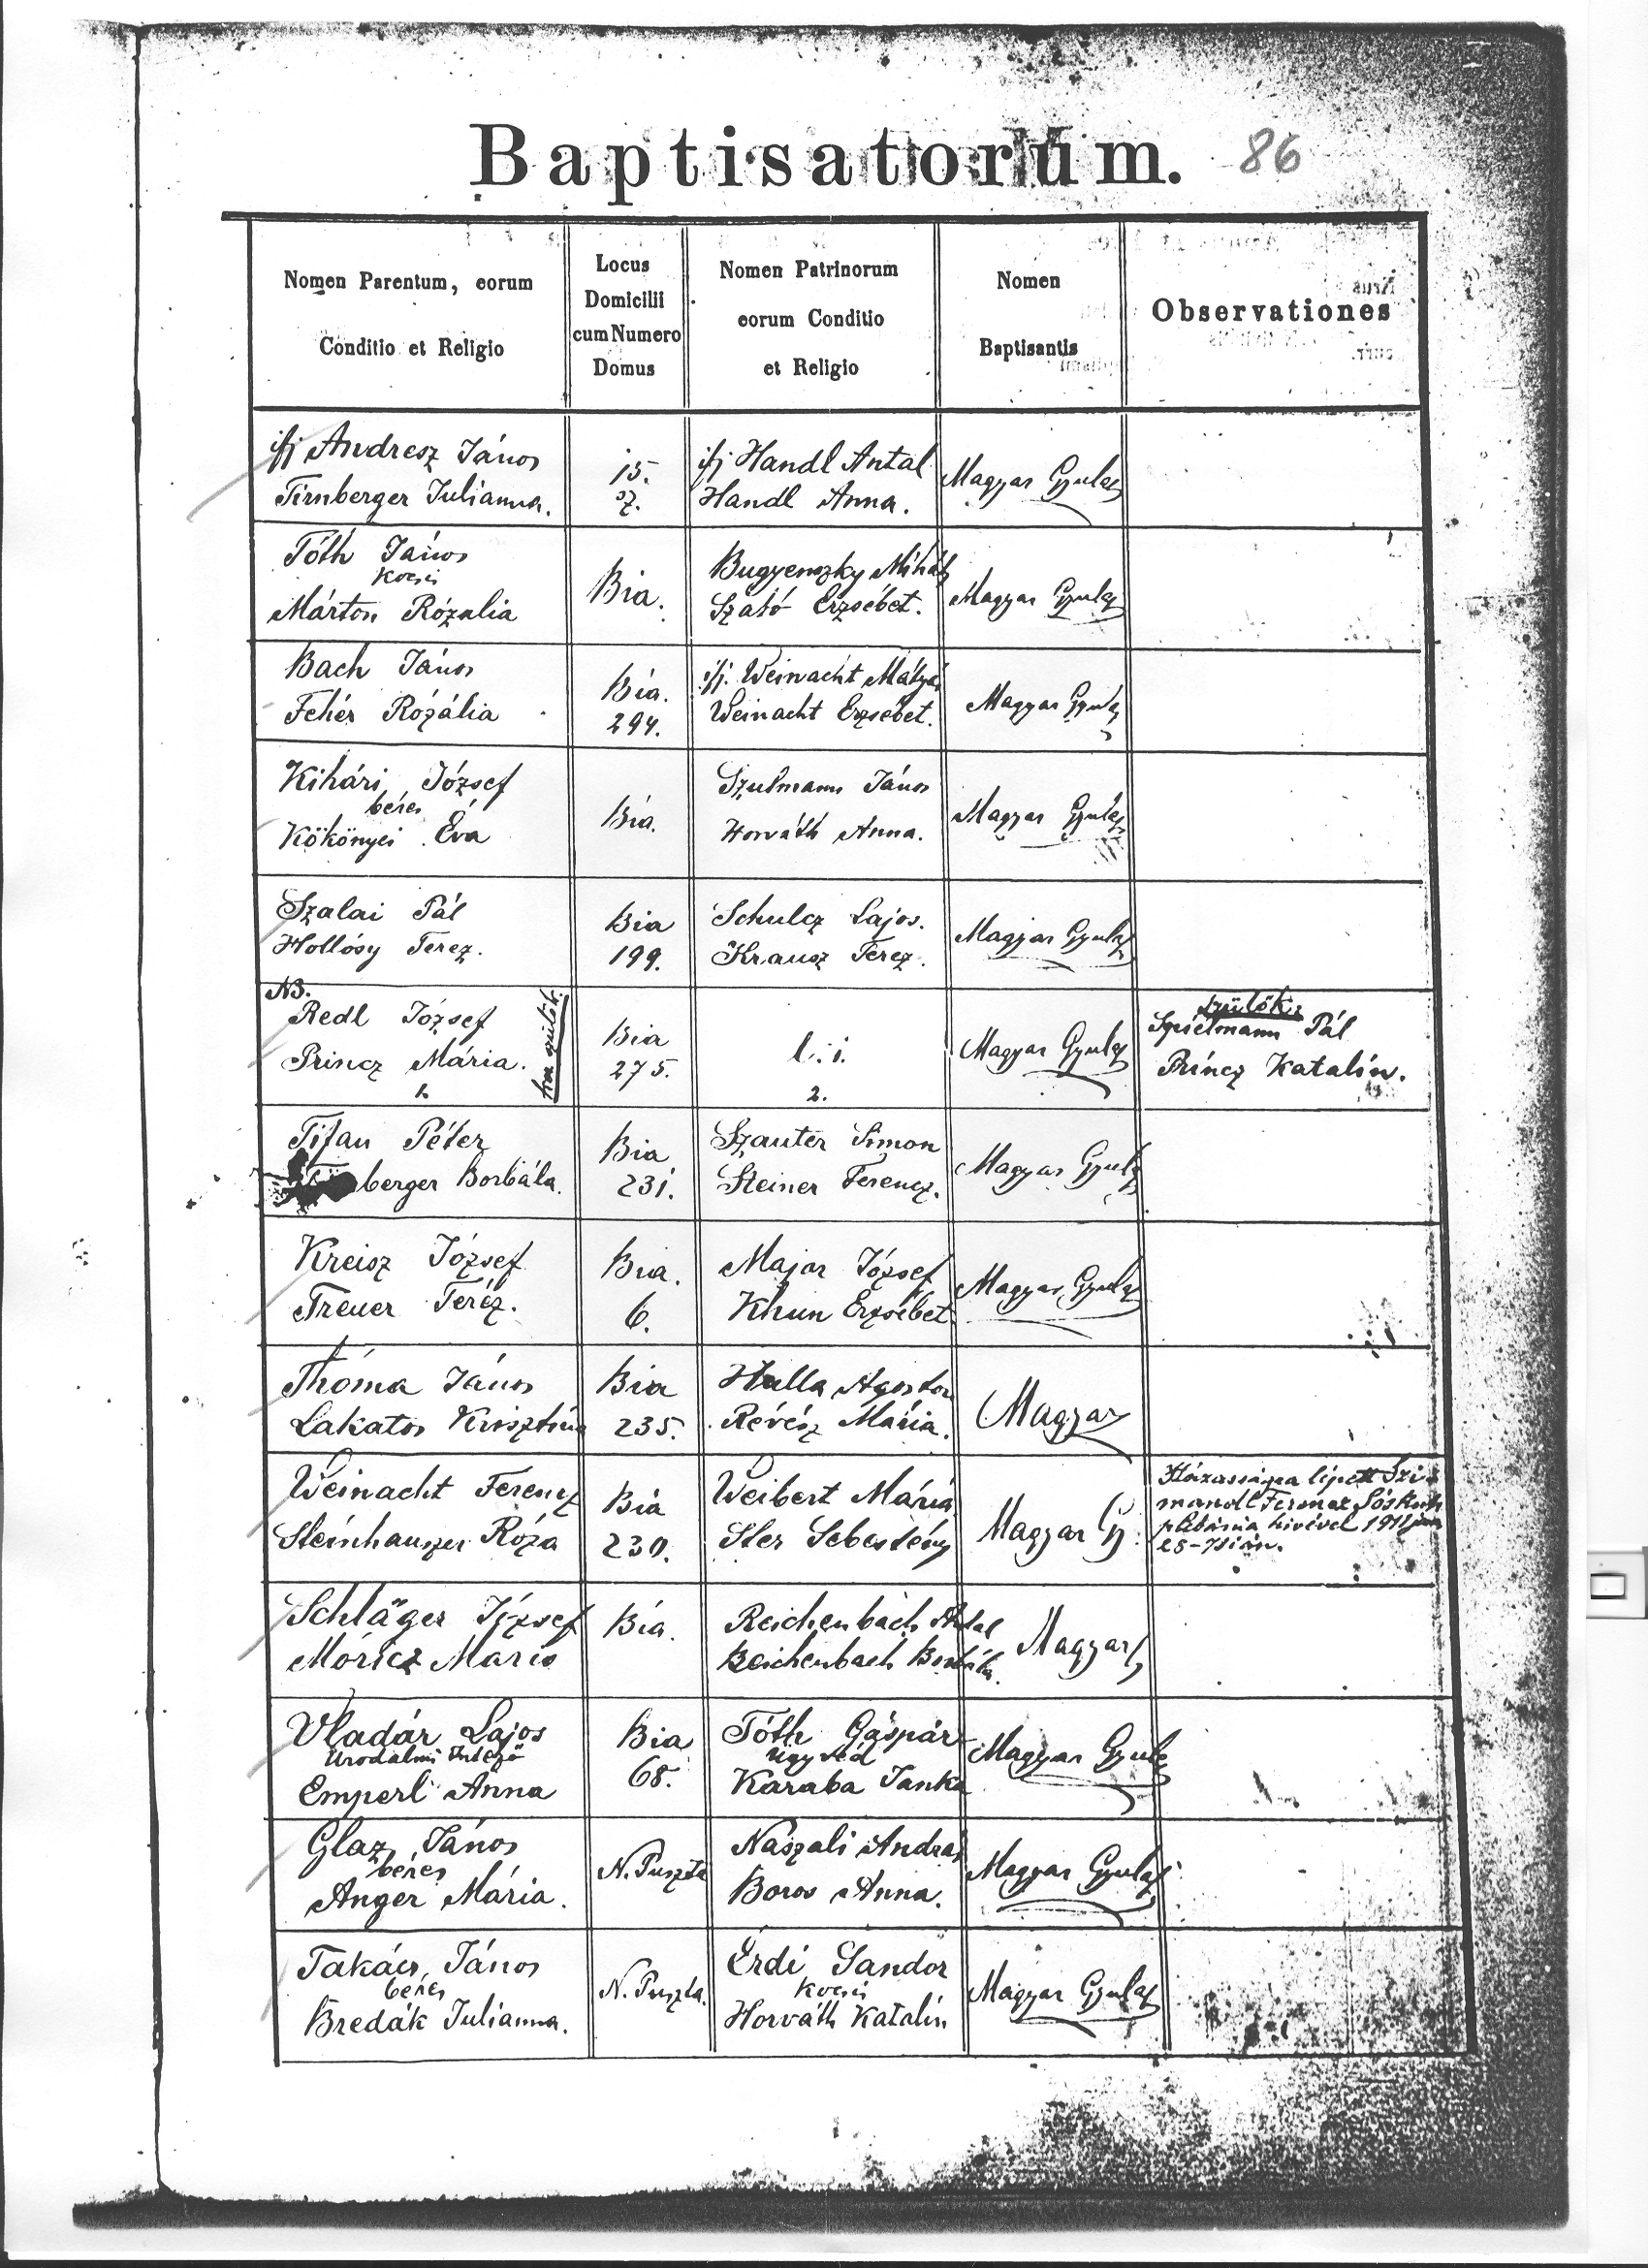 Baptisatorum.
86
Nomen Parentum, eorum
Conditio et Religio
Locus
Domicilii
cum Numero
Domus
Nomen Patrinorum
eorum Conditio
et Religio
Nomen
Baptisantis
Observationes
ifj Andresz János
Tirnberger Julianna.
15.
sz.
ifj Handl Antal
Handl Anna.
Magyar Gyula
Tóth János
kocsis
Márton Rózalia
Bia.
Bugyenszky Mihály
Szabó Erzsébet.
Magyar Gyula
Bach János
Fehér Rózália
Bia.
294.
ifj. Weinacht Mátyás
Weinacht Erzsébet.
Magyar Gyula
Kihári József
béres
Kökönyei Éva
Bia.
Szulmann János
Horváth Anna.
Magyar Gyula
Szalai Pál
Hollósy Terez.
Bia
199.
Schulcz Lajos.
Krausz Terez.
Magyar Gyula
NB.
Redl József
Princz Mária.
1.
Bia
275.
l. i.
2.
Magyar Gyula
szülők:
Spielmann Pál
Princz Katalin.
Tifan Péter
berger Borbála.
Bia
231.
Szauter Simon
Steiner Ferencz.
Magyar Gyula
Kreisz József
Treuer Teréz.
Bia.
6.
Major József
Khun Erzsébet
Magyar Gyula
Thóma János
Lakatos Krisztina
Bia
235.
Halla Agoston
Révész Mária.
Magyar
Weinacht Ferencz
Steinhauszer Róza
Bia
230.
Weibert Mária
Ster Sebestény
Magyar Gy.
Házasságra lépett Szi-
mandl Ferencz Sóskuti
plébánia hivével 1911 jan
25-ikén.
Schläger József
Móricz Maris
Bia.
Reichenbach Antal
Reichenbach Borbála.
Magyar
Vladár Lajos
Urodalmi Intéző
Emperl Anna
Bia
68.
Tóth Gáspár
ügyvéd
Karaba Janka
Magyar Gyula
Glaz János
béres
Anger Mária.
N. Puszta
Naszali András
Boros Anna.
Magyar Gyula
Takács János
béres
Bredák Julianna.
N. Puszta.
Érdi Sandor
kocsis
Horváth Katalin
Magyar Gyula